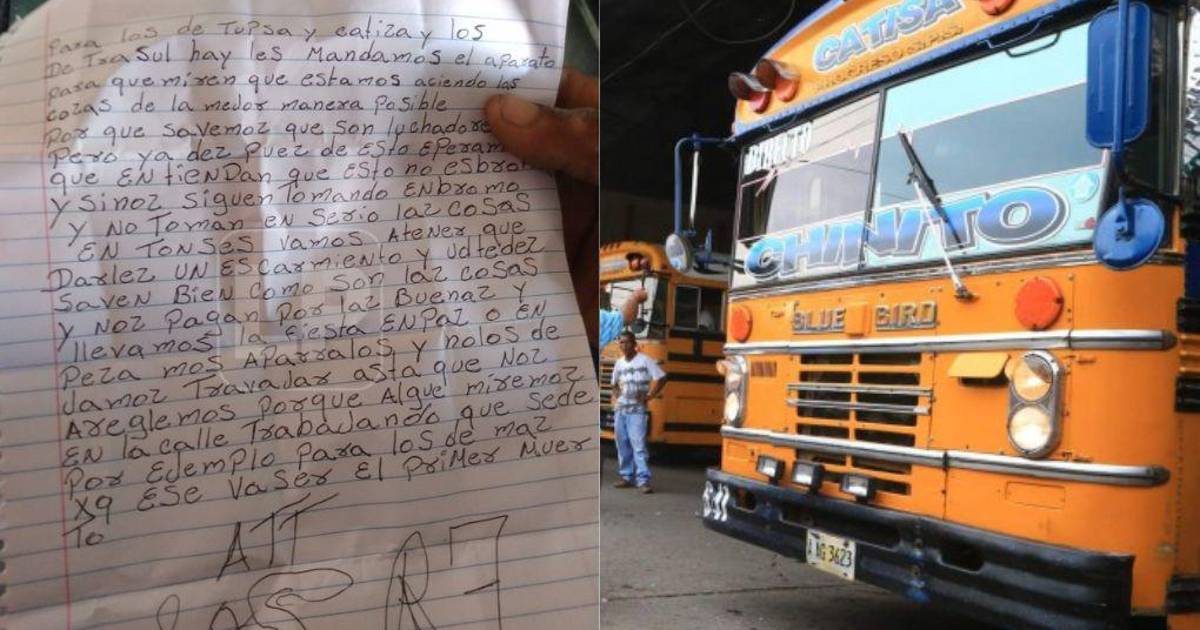 Para los de Tupsa y catiza y los
De Tra Sul hay les Mandamos el aparato
para que miren que estamos aciendo las
cozas de la medor manera posible
Por que savemoz que son luchadore
Pero ya dez puez de esto eperam
que ENtieNDan que ESto no esbro
y sinoz siguen Tomando ENbromo
y No Toman en serio laz cosas
EN TONSES vamos Atener que
Darlez UN EScarmiento y udtedez
saven Bien como son laz cosas
y Noz Pagan Por laz Buenaz y
llevamos la fiesta ENPaz o EN
Peza mos APArralos y nolos de
Jamoz Travajar asta que Noz
Areglemos Porque Algue miremoz
EN la calle Trabajando que sede
Por Ejemplo Para los de maz
xq ESE vaser El PriMer Muer
To
ATT
Los R
CATISA
CHINITO
BLUE BIRD
AAG 3623